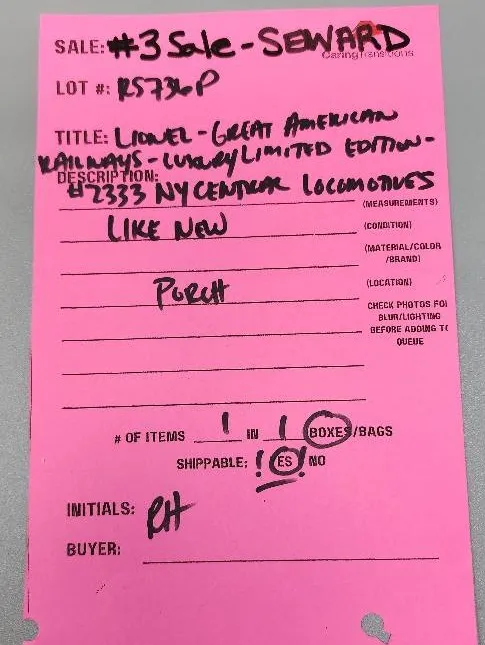 SALE: #3 Sale - SEWARD
CaringTransitions
LOT #: RS736P
TITLE: LIONEL - GREAT AMERICAN
RAILWAYS - LUXURY LIMITED EDITION -
DESCRIPTION:
#2333 NY CENTRAL LOCOMOTIVES
(MEASUREMENTS)
LIKE NEW
(CONDITION)
(MATERIAL/COLOR
/BRAND)
PORCH
(LOCATION)
CHECK PHOTOS FO
BLUR/LIGHTING
BEFORE ADDING TO
QUEUE
# OF ITEMS 1 IN 1 BOXES/BAGS
SHIPPABLE: ! ES ! NO
INITIALS: RH
BUYER: